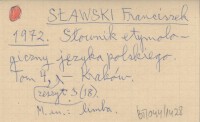 SŁAWSKI Franciszek
1972. Słownik etymolo-
giczny języka polskiego.
Tom 4, Kraków.
zeszyt 3 (18)
M. in.: limba.